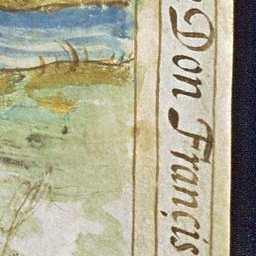 Don Francis